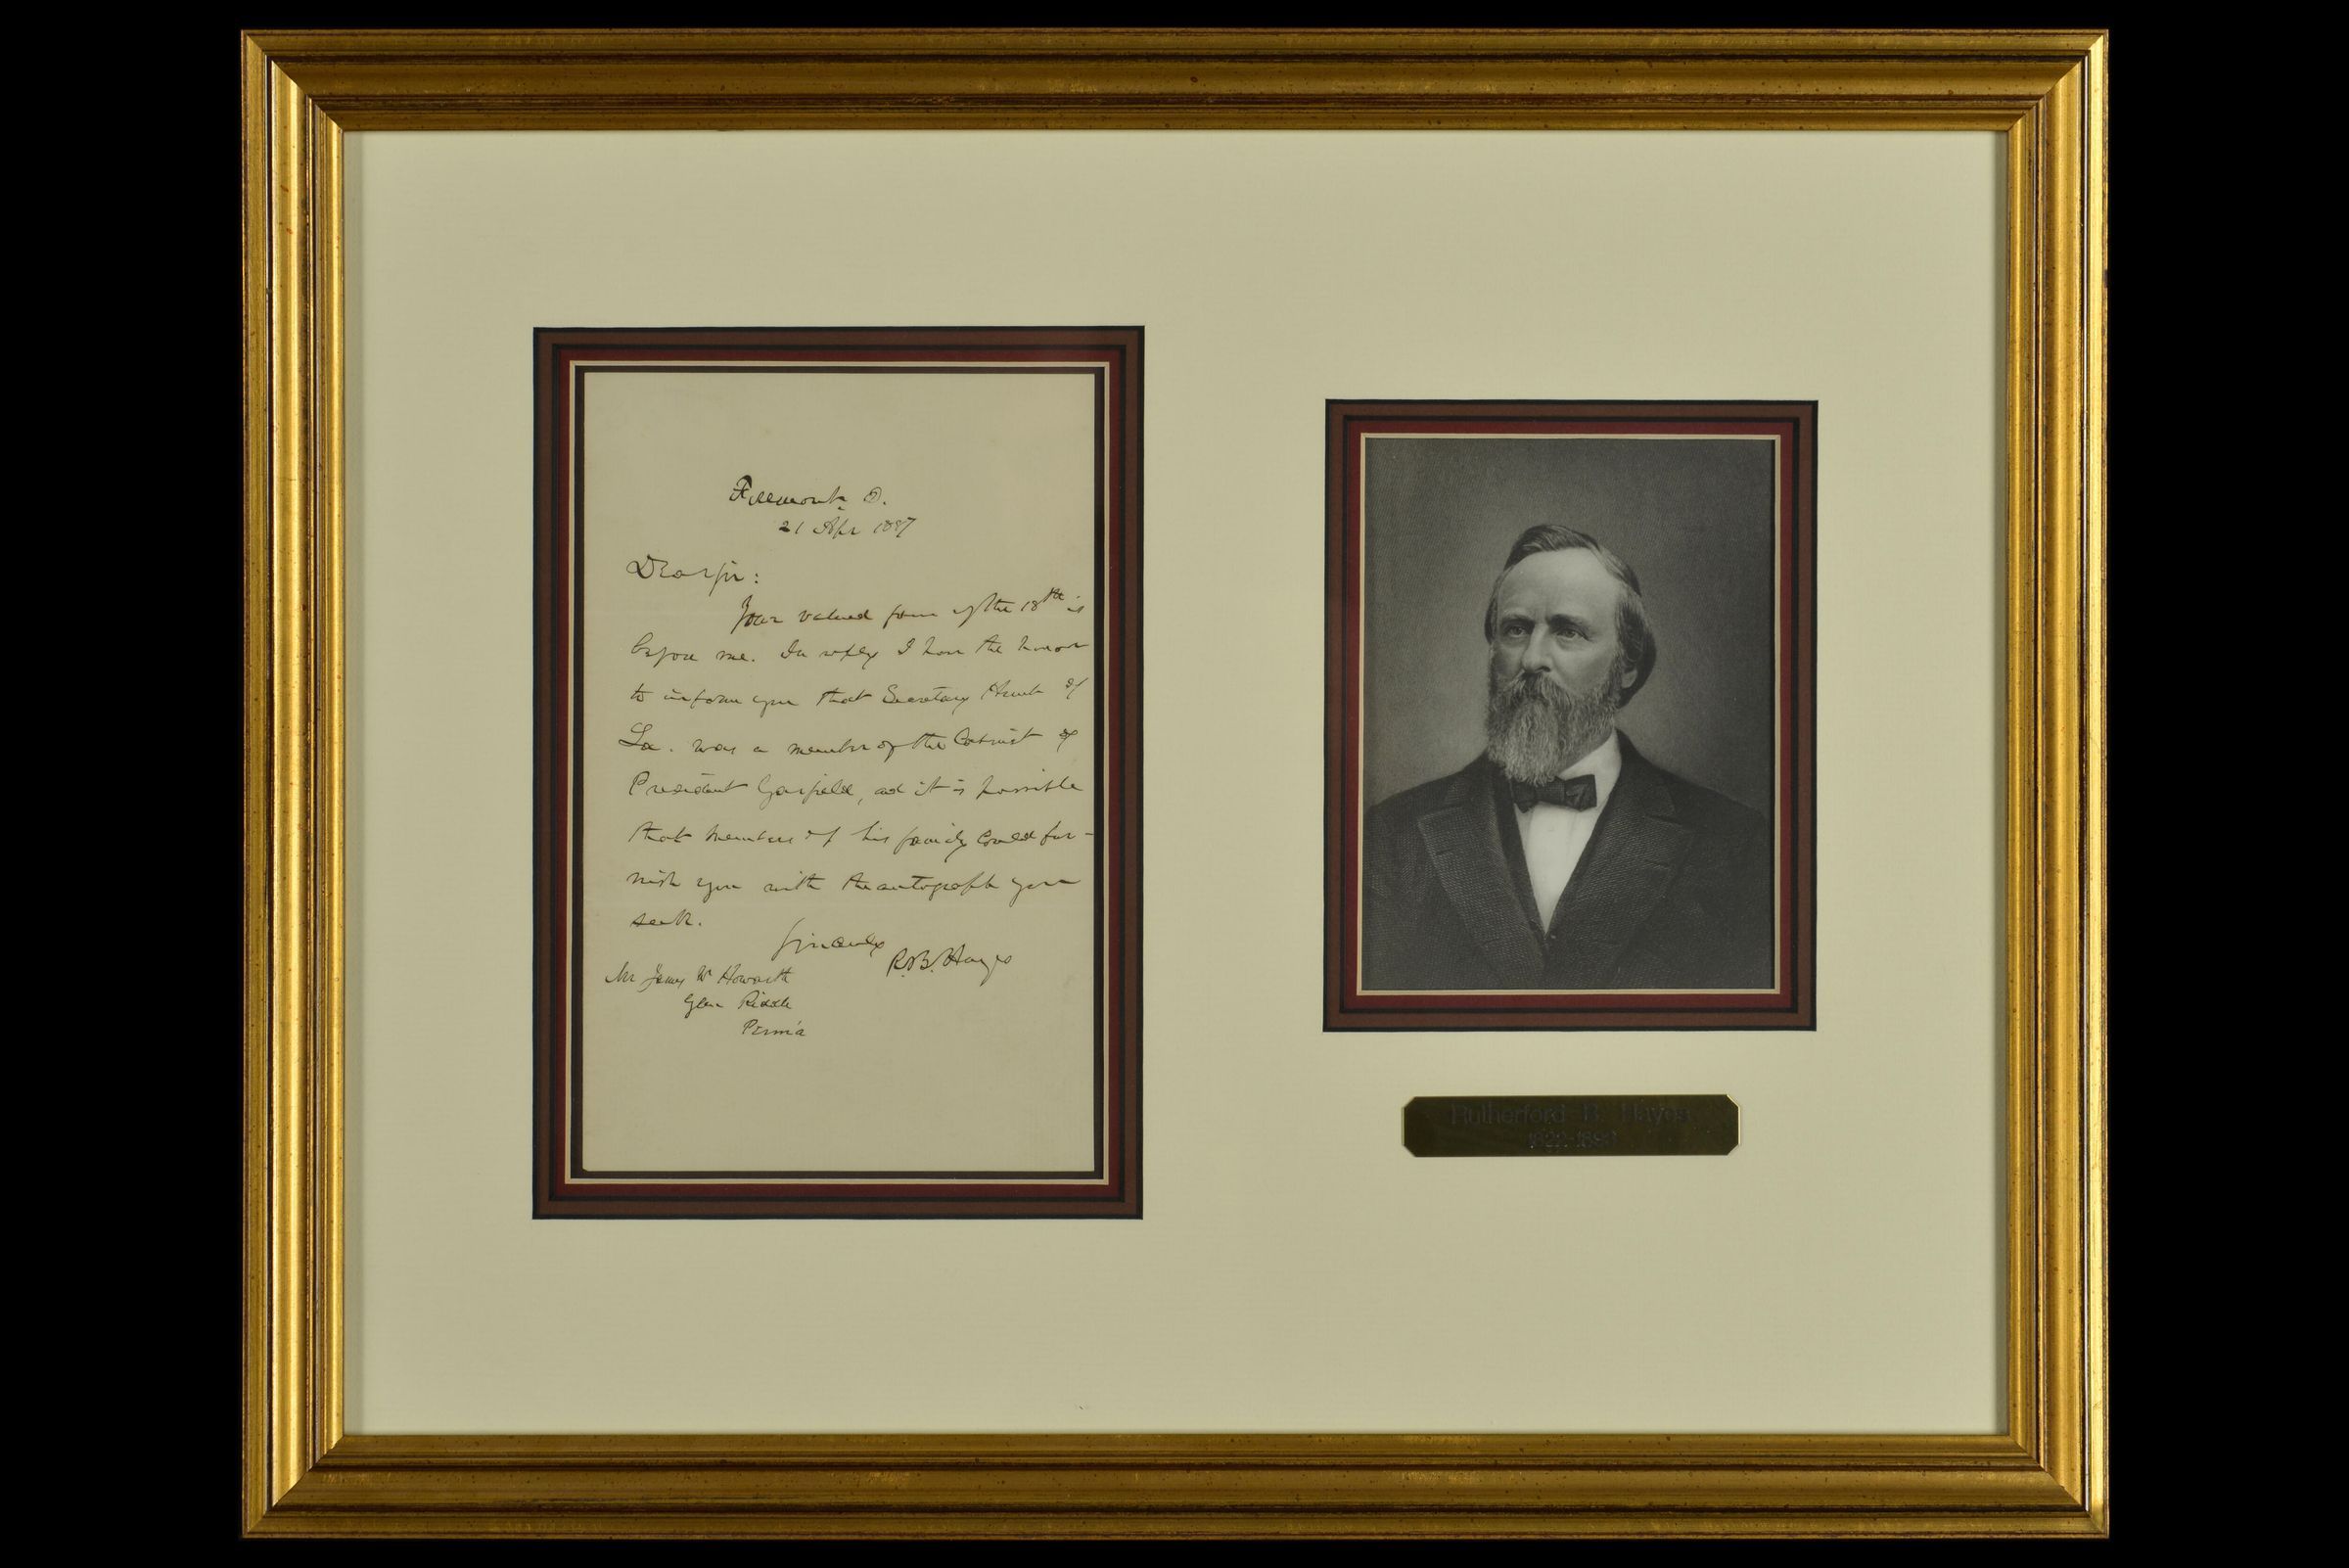 Fremont, O.
21 Apr 1887
Dear Sir:
Your valued favor of the 18th is
before me. In reply I have the honor
to inform you that Secretary Hunt of
La. was a member of the Cabinet of
President Garfield, and it is possible
that members of his family could fur-
nish you with the autograph you
seek.
Sincerely
R.B. Hayes
Mr James W Howarth
Glen Riddle
Penn'a
Rutherford B. Hayes
1822-1893